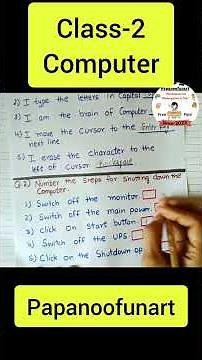 Class-2
Computer
2) I type the letters in Capital
3) I am the brain of Computer
4) I move the cursor to the Enter Key
next line
5) I erase the character to the
left of cursor Backspace
Q.2) Number the steps for shutting down the
Computer.
1) Switch off the monitor
2) Switch off the main power
3) Click on Start button
4) Switch off the UPS
5) Click on the Shutdown op
Papanoofunart